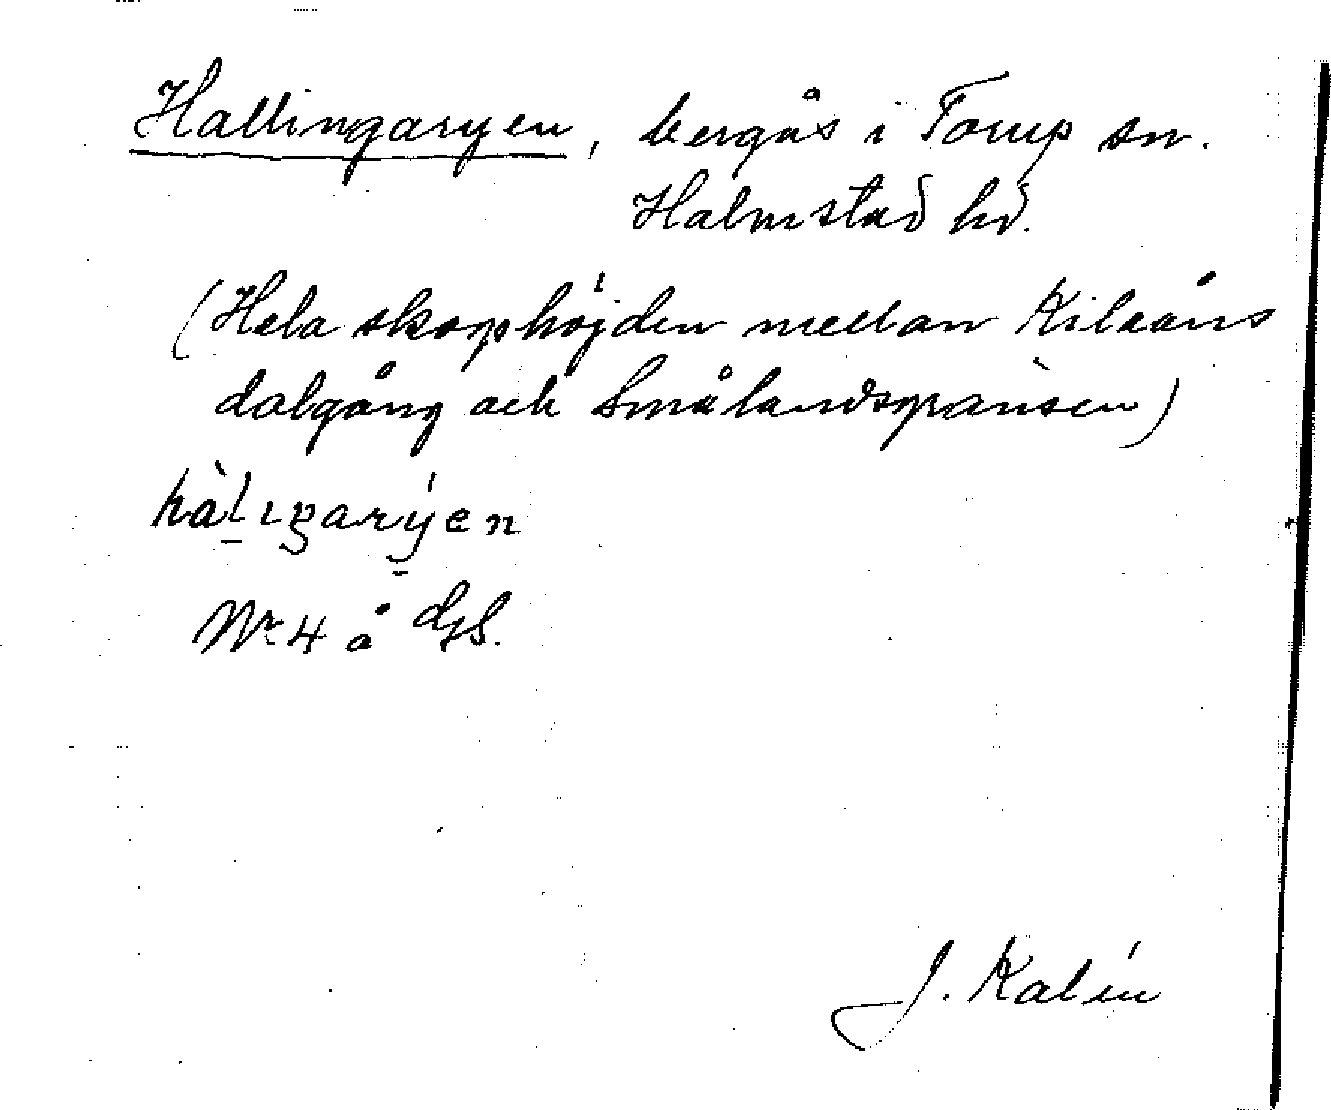 Hallingaryen, bergås i Torup sn.
Halmstad hd.
(Hela skogshöjden mellan Kilaåns
dalgång och Smålandsgränsen)
hàlıŋarýen
Nr 4 å GS.
J. Kalén